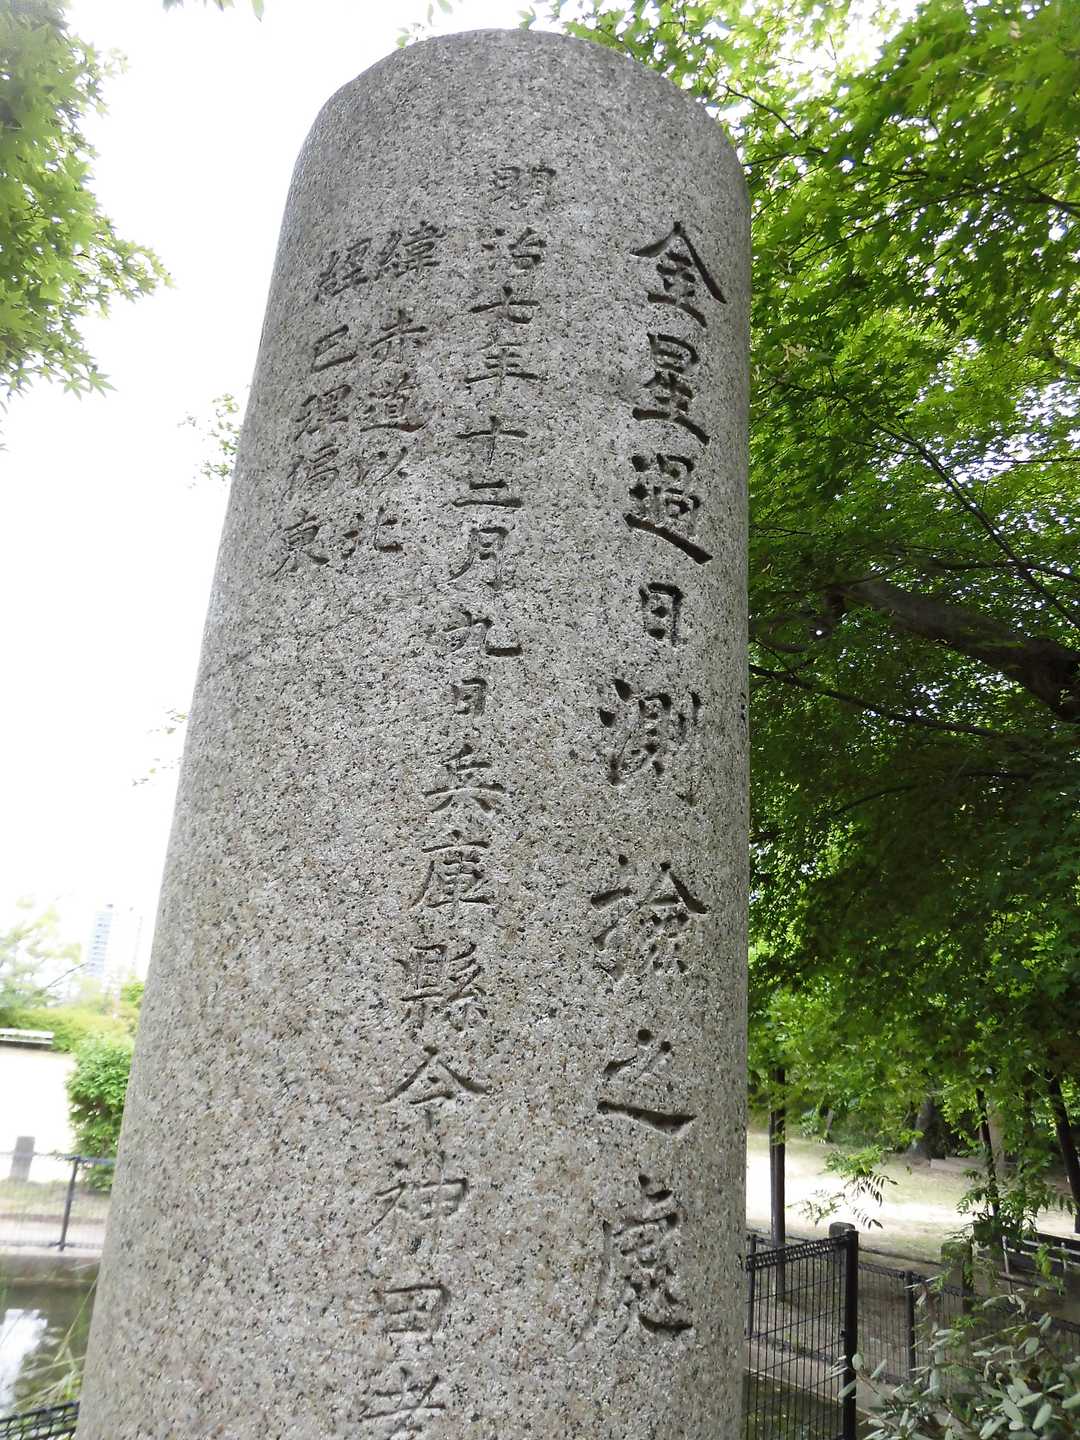 金星過日測檢之處
明治七年十二月九日兵庫縣令神田孝
緯赤道以北
經巴理偏東